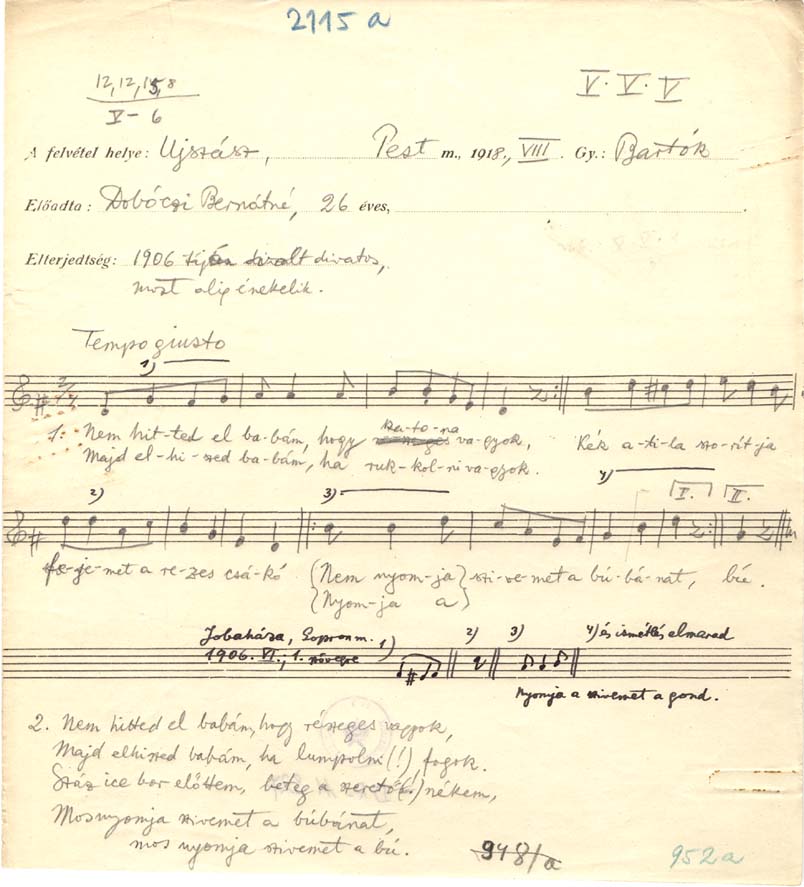 2115 a
12, 12, 15, 8
V – 6
V. V. V
A felvétel helye: Ujszász, Pest m., 1918., VIII. Gy.: Bartók
Előadta: Dobóczi Bernátné, 26 éves,
Elterjedtség: 1906 divatos,
most alig éneklik.
Tempo giusto
1)
1. Nem hit-ted el ba-bám, hogy ka-to-na va-gyok, Kék a-ti-la szo-rit-ja
Majd el-hi-szed ba-bám, ha ruk-kol-ni va-gyok.
2) 3) 4) I. II.
fe-je-met a re-zes csá-kó (Nem nyom-ja) szi-ve-met a bú-bá-nat, bú.
(Nyom-ja a)
Jobaháza, Sopron m. 1) 2) 3) 4) és ismétlés elmarad
1906. VI.; 1. szövegre
Nyomja a szivemet a gond.
2. Nem hitted el babám, hogy részeges vagyok,
Majd elhiszed babám, ha lumpolni (!) fogok.
Száz ice bor előttem, beteg a szerető(!) nékem,
Mos nyomja szivemet a búbánat,
mos nyomja szivemet a bú.
948/a
952 a